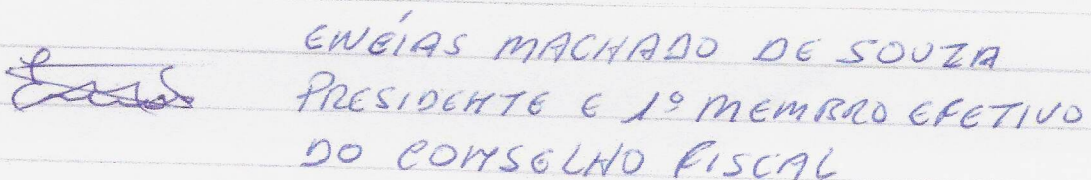 ENÉIAS MACHADO DE SOUZA
PRESIDENTE E 1º MEMBRO EFETIVO
DO CONSELHO FISCAL